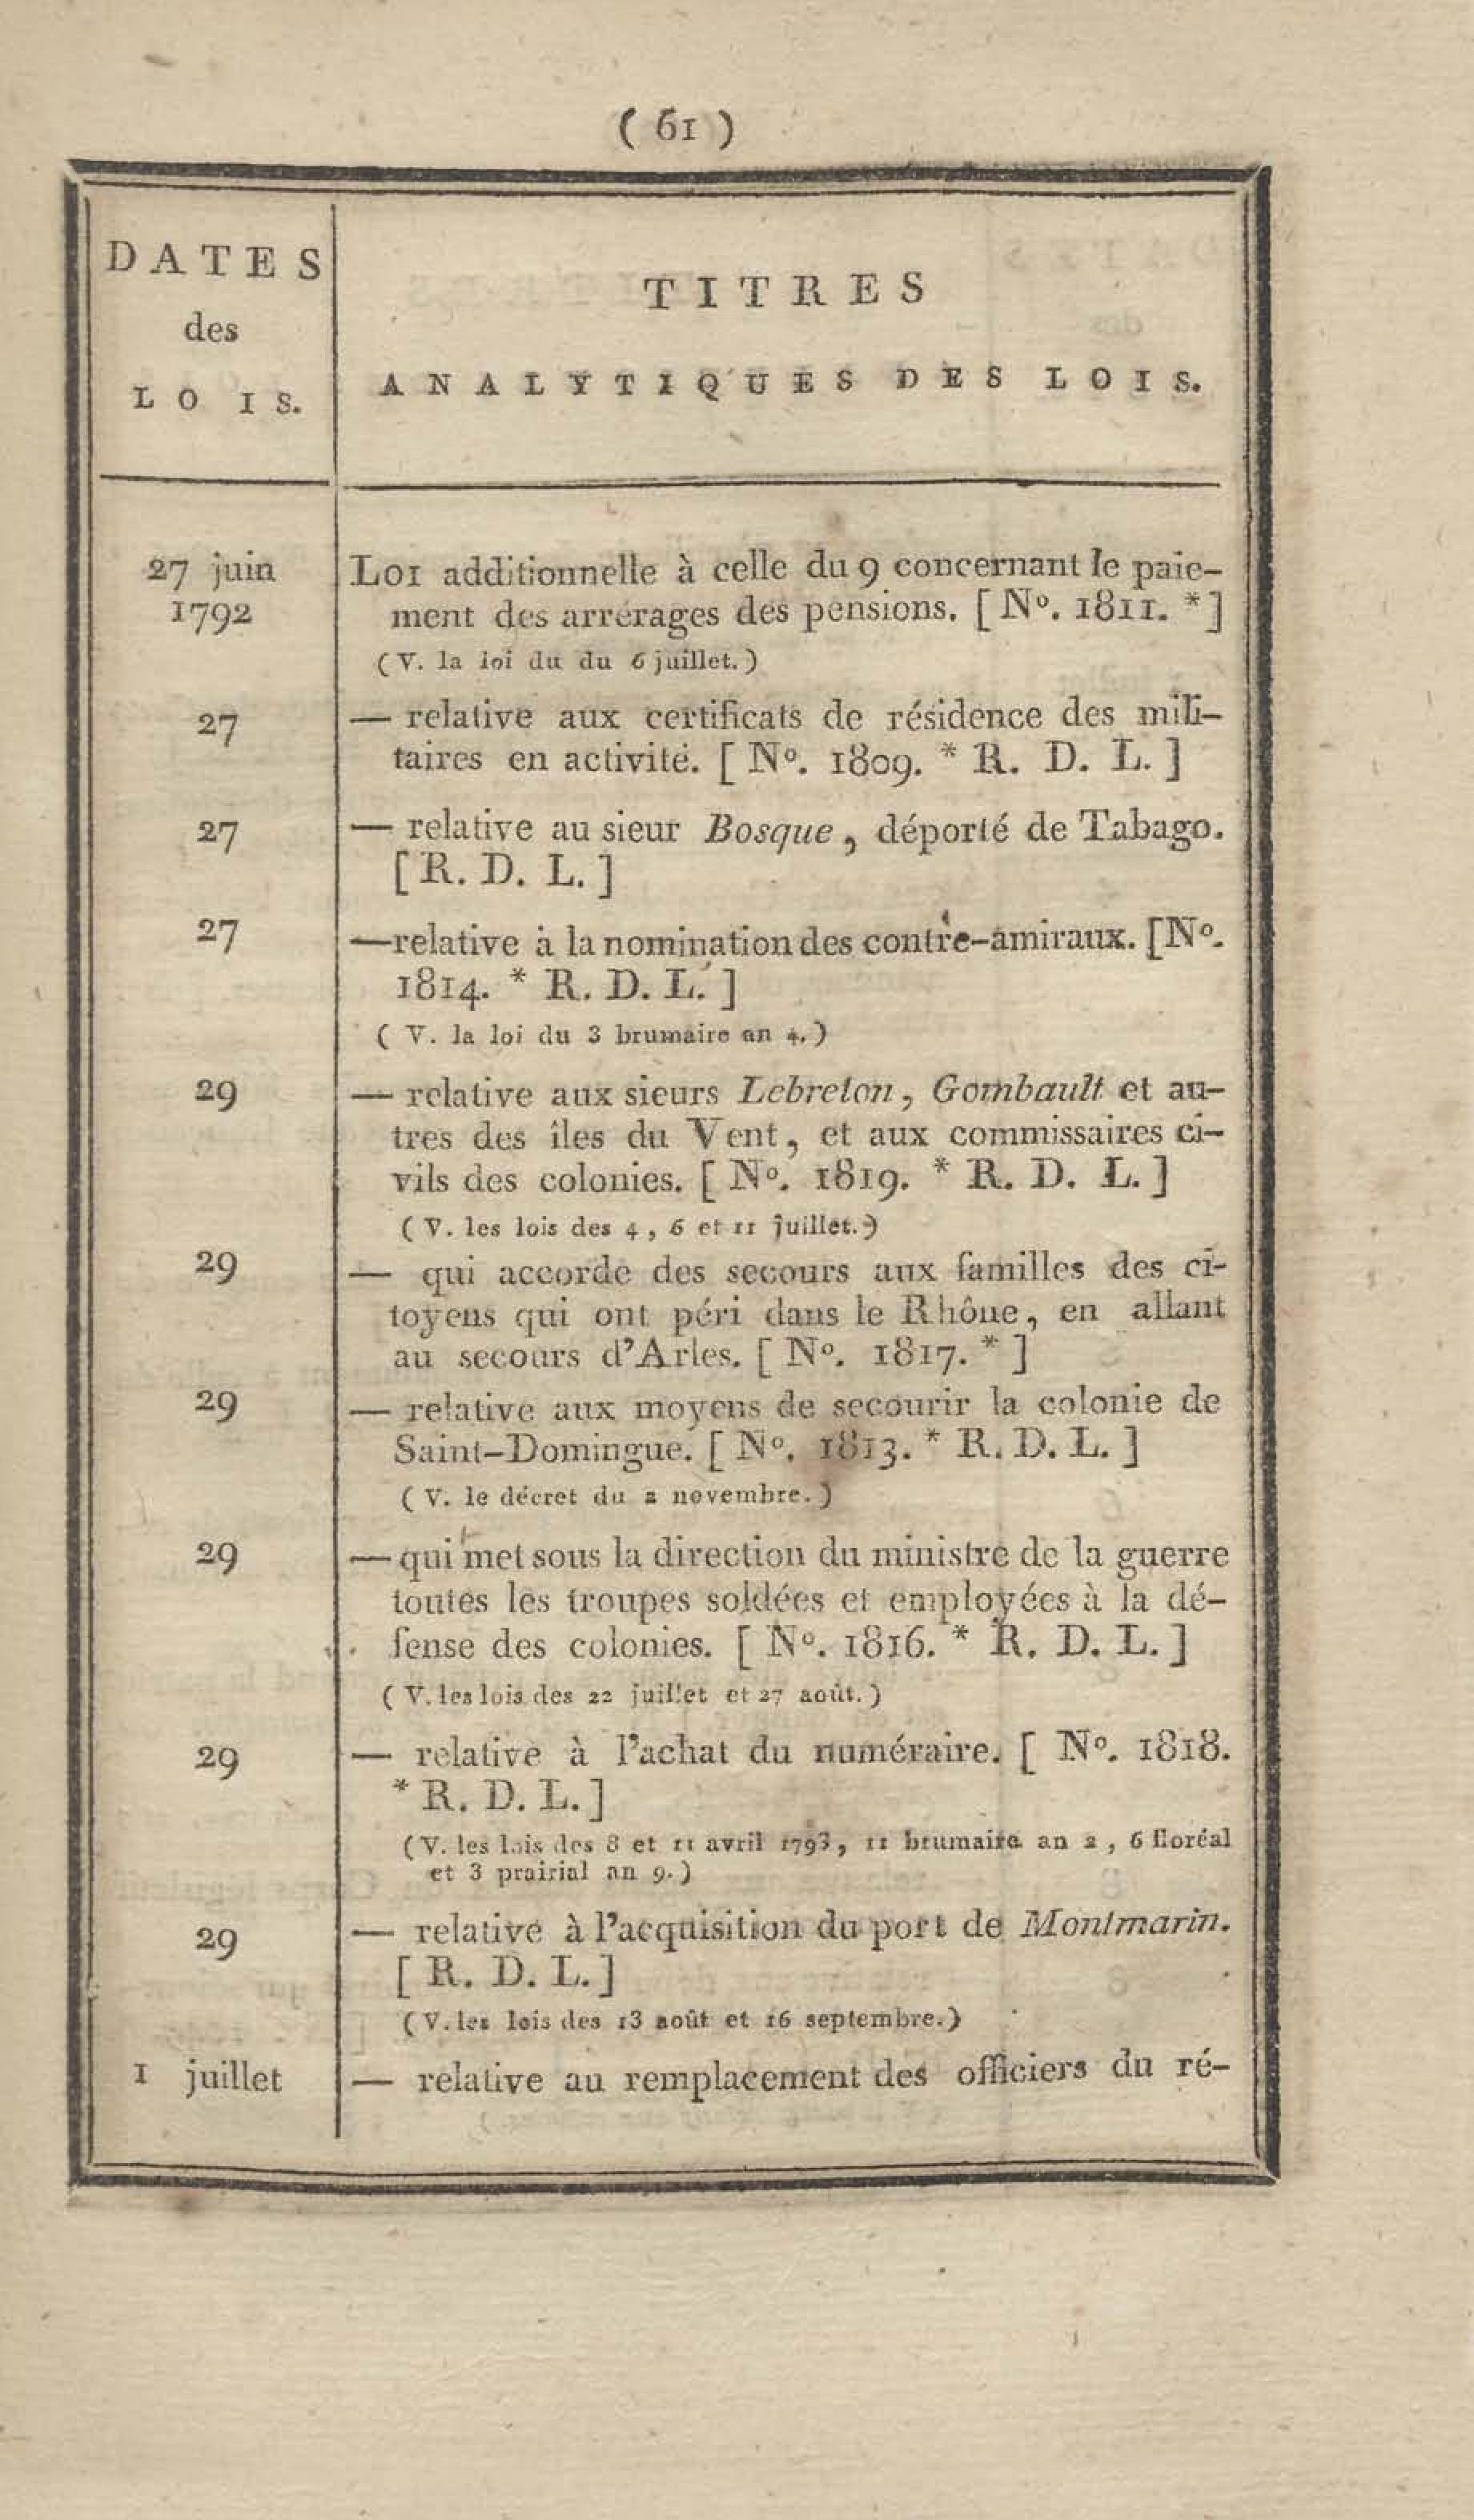 ( 61 )
DATES
des
LOIS.
TITRES
ANALYTIQUES DES LOIS.
27 juin
1792
LOI additionnelle à celle du 9 concernant le paie-
ment des arrérages des pensions. [ Nº. 1811. * ]
( V. la loi du du 6 juillet. )
27
— relative aux certificats de résidence des mili-
taires en activité. [ Nº. 1809. * R. D. L. ]
27
— relative au sieur Bosque, déporté de Tabago.
[ R. D. L. ]
27
— relative à la nomination des contre-amiraux. [Nº.
1814. * R. D. L. ]
( V. la loi du 3 brumaire an 4. )
29
— relative aux sieurs Lebreton, Gombault et au-
tres des îles du Vent, et aux commissaires ci-
vils des colonies. [ Nº. 1819. * R. D. L. ]
( V. les lois des 4, 6 et 11 juillet. )
29
— qui accorde des secours aux familles des ci-
toyens qui ont péri dans le Rhône, en allant
au secours d'Arles. [ Nº. 1817. * ]
29
— relative aux moyens de secourir la colonie de
Saint-Domingue. [ Nº. 1813. * R. D. L. ]
( V. le décret du 2 novembre. )
29
— qui met sous la direction du ministre de la guerre
toutes les troupes soldées et employées à la dé-
fense des colonies. [ Nº. 1816. * R. D. L. ]
( V. les lois des 22 juillet et 27 août. )
29
— relative à l'achat du numéraire. [ Nº. 1818.
* R. D. L. ]
( V. les lois des 8 et 11 avril 1793, 11 brumaire an 2, 6 floréal
et 3 prairial an 9. )
29
— relative à l'acquisition du port de Montmarin.
[ R. D. L. ]
( V. les lois des 13 août et 16 septembre. )
1 juillet
— relative au remplacement des officiers du ré-